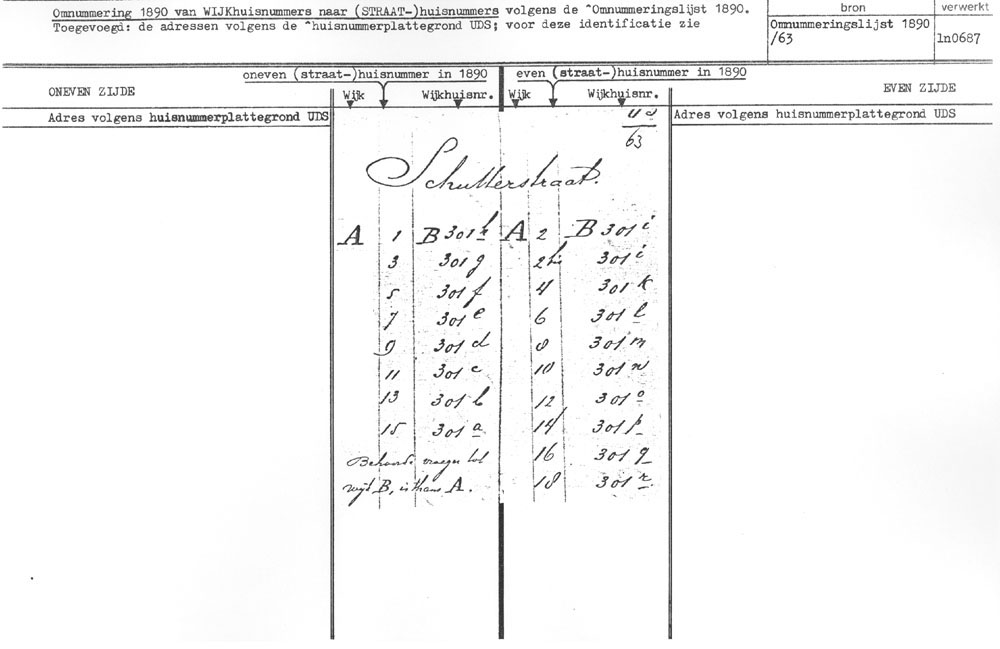 Omnummering 1890 van WIJKhuisnummers naar (STRAAT-)huisnummers volgens de ^Omnummeringslijst 1890.
Toegevoegd: de adressen volgens de ^huisnummerplattegrond UDS; voor deze identificatie zie
bron
Omnummeringslijst 1890
/63
verwerkt
ln0687
oneven (straat-)huisnummer in 1890 even (straat-)huisnummer in 1890
ONEVEN ZIJDE Wijk Wijkhuisnr. Wijk Wijkhuisnr. EVEN ZIJDE
Adres volgens huisnummerplattegrond UDS Adres volgens huisnummerplattegrond UDS
63
Schutterstraat.
A 1 B 301 h A 2 B 301 i
3 301 g 2bis 301 i
5 301 f 4 301 k
7 301 e 6 301 l
9 301 d 8 301 m
11 301 c 10 301 n
13 301 b 12 301 o
15 301 a 14 301 p
Behoorde vroeger tot 16 301 q
wijk B, is thans A. 18 301 r